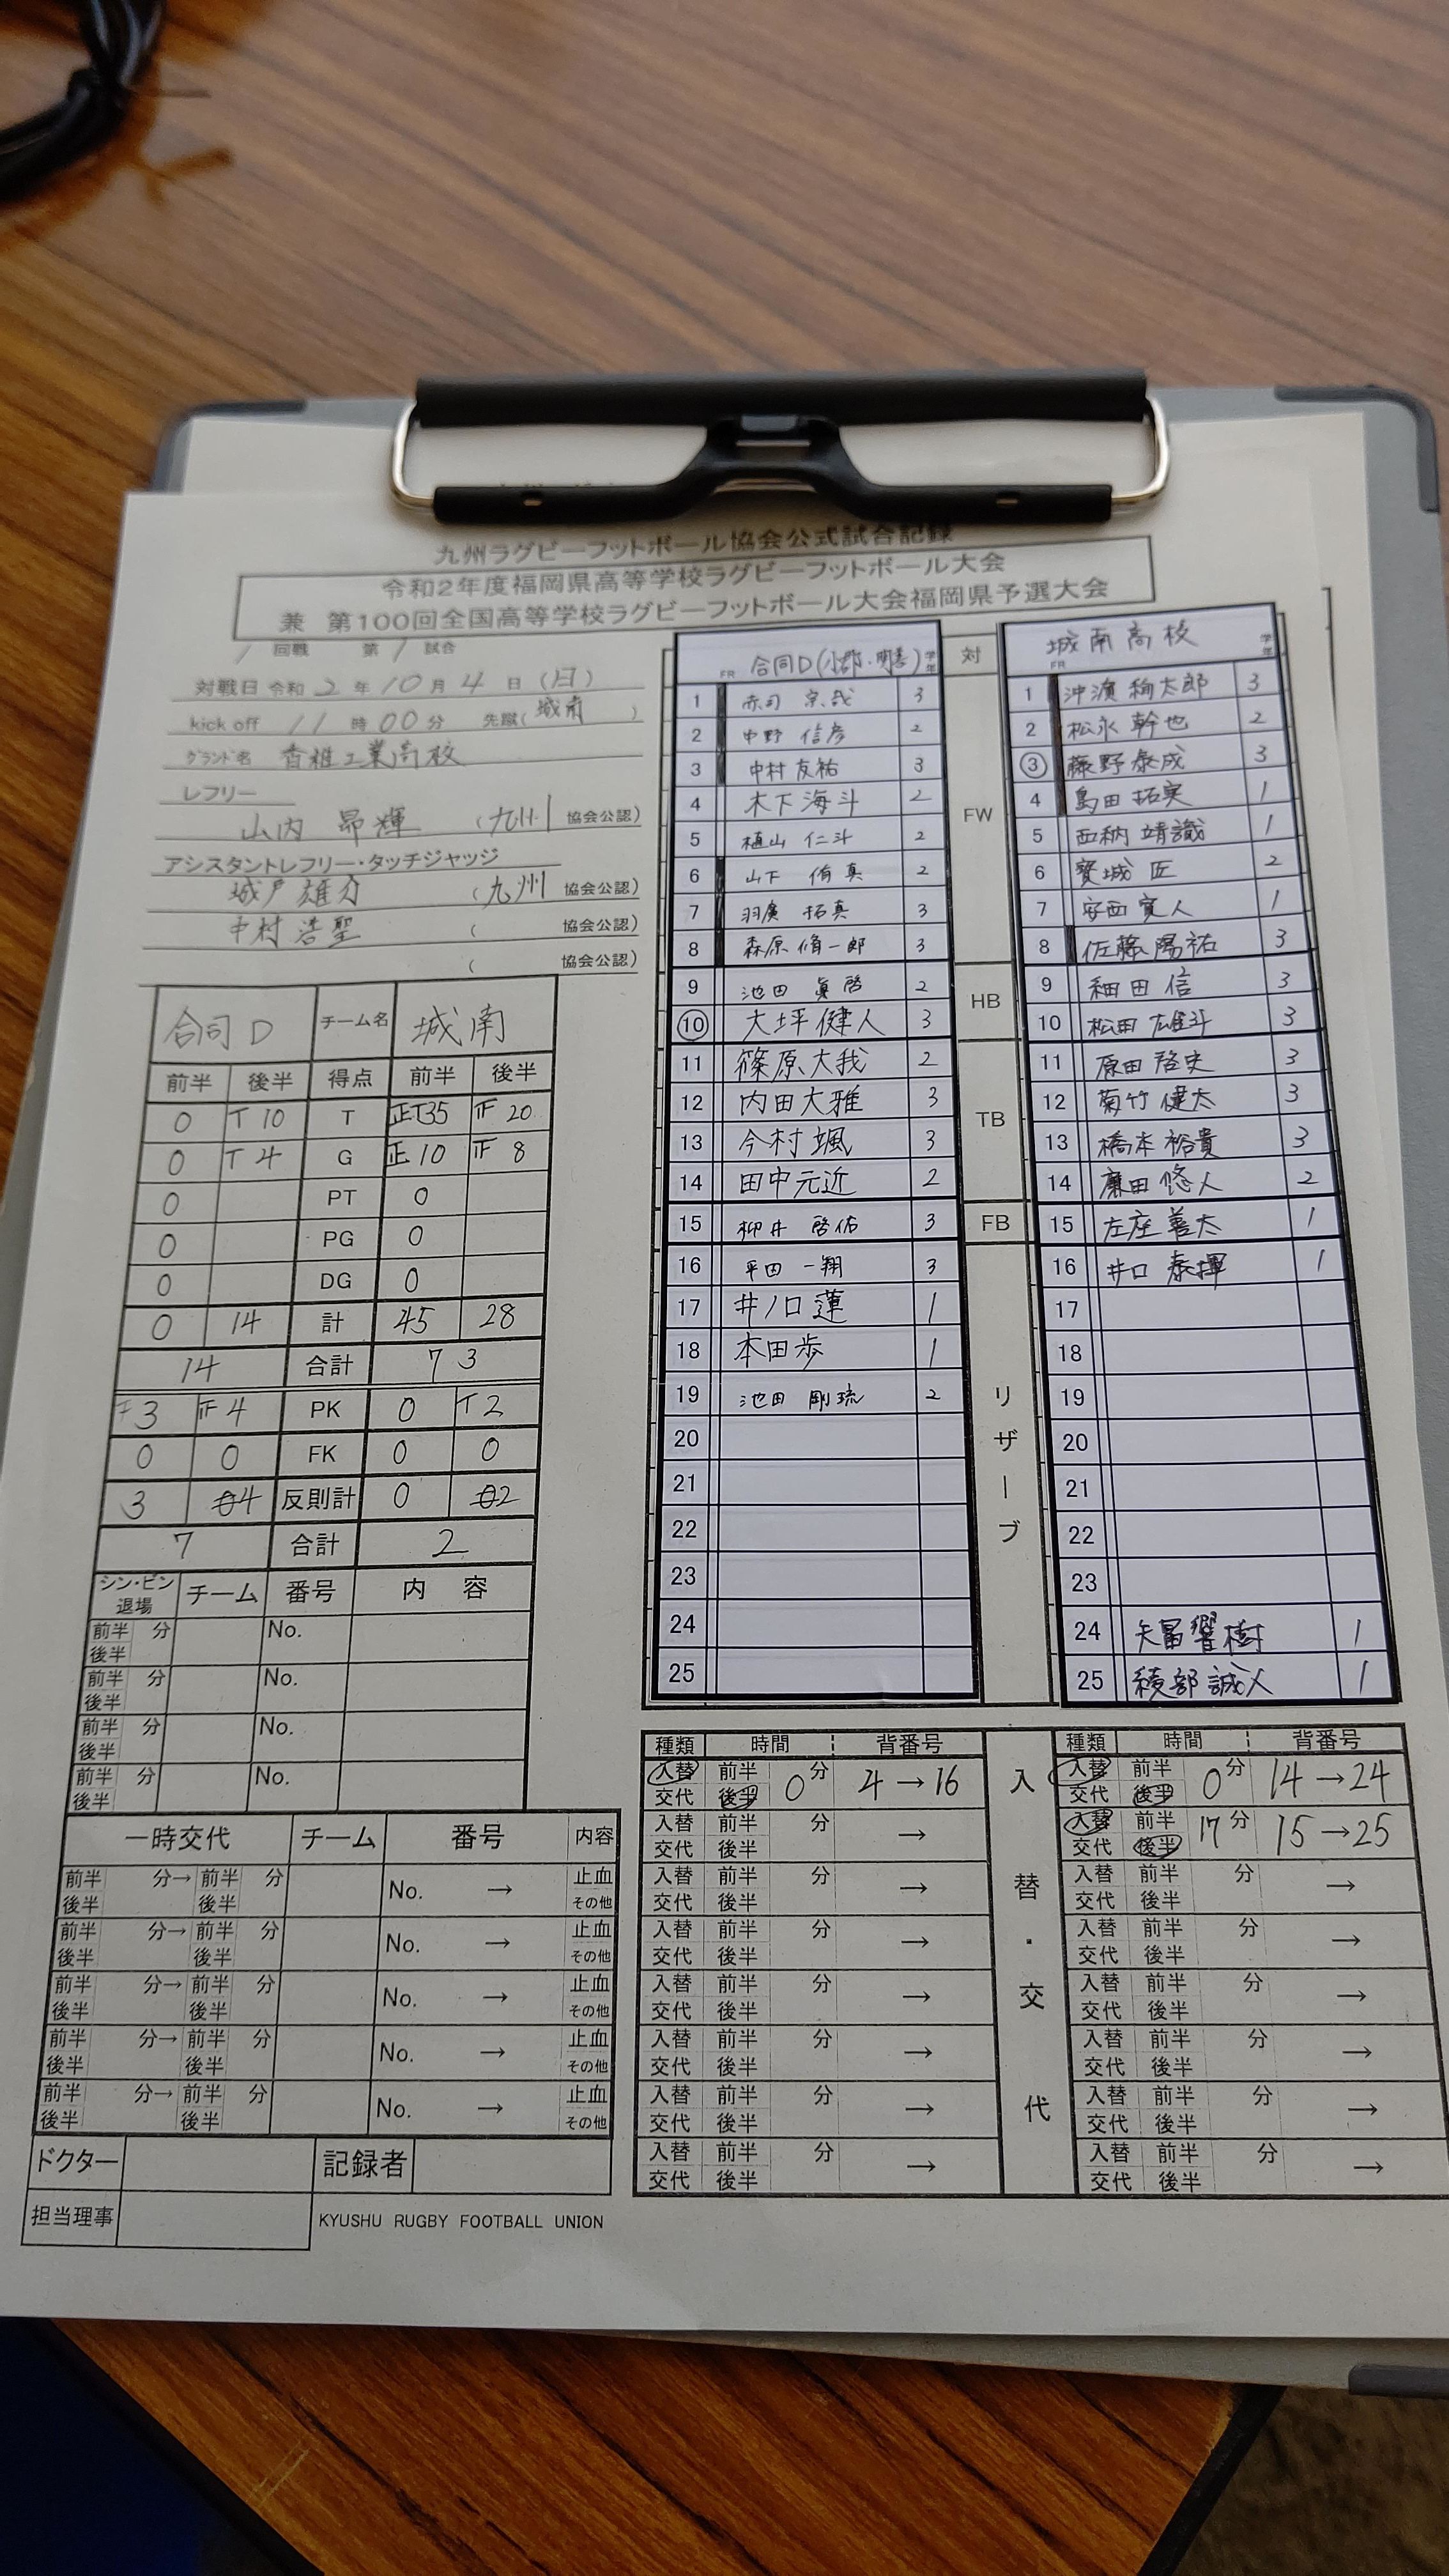 九州ラグビーフットボール協会公式試合記録
令和2年度福岡県高等学校ラグビーフットボール大会
兼 第100回全国高等学校ラグビーフットボール大会福岡県予選大会
1 回戦 第 1 試合
対戦日 令和 2 年 10 月 4 日 (日)
kick off 11 時 00 分 先蹴( 城南 )
グランド名 香椎工業高校
レフリー
山内 昂輝 (九州 協会公認)
アシスタントレフリー・タッチジャッジ
城戸雄介 (九州 協会公認)
中村浩聖 ( 協会公認)
( 協会公認)
合同D チーム名 城南
前半 後半 得点 前半 後半
0 T 10 T 正T35 正 20
0 T 4 G 正10 正 8
0 PT 0
0 PG 0
0 DG 0
0 14 計 45 28
14 合計 73
3 正4 PK 0 T2
0 0 FK 0 0
3 4 反則計 0 2
7 合計 2
シン・ビン 退場 チーム 番号 内 容
前半 分 No.
後半
前半 分 No.
後半
前半 分 No.
後半
前半 分 No.
後半
一時交代 チーム 番号 内容
前半 分→ 前半 分 No. → 止血
後半 後半 その他
前半 分→ 前半 分 No. → 止血
後半 後半 その他
前半 分→ 前半 分 No. → 止血
後半 後半 その他
前半 分→ 前半 分 No. → 止血
後半 後半 その他
前半 分→ 前半 分 No. → 止血
後半 後半 その他
ドクター 記録者
担当理事 KYUSHU RUGBY FOOTBALL UNION
FR 合同D(小郡・明善) 学年 対 FR 城南高校 学年
FW
HB
TB
FB
リザーブ
1 赤司 3
2 中野 信彦 2
3 中村 友祐 3
4 木下海斗 2
5 植山 仁斗 2
6 山下 侑真 2
7 羽廣 拓真 3
8 森原 脩一郎 3
9 池田 眞啓 2
10 大坪健人 3
11 篠原大我 2
12 内田大雅 3
13 今村颯 3
14 田中元近 2
15 柳井 啓佑 3
16 平田 一翔 3
17 井ノ口蓮 1
18 本田歩 1
19 池田 剛琉 2
20
21
22
23
24
25
1 沖濱 絢太郎 3
2 松永 幹也 2
3 藤野 泰成 3
4 島田 拓実 1
5 西納 靖識 1
6 寳城 匠 2
7 安西 寛人 1
8 佐藤 陽祐 3
9 細田 信 3
10 松田 雄斗 3
11 原田 啓史 3
12 菊竹 健太 3
13 橋本 裕貴 3
14 廉田 悠人 2
15 左座 善太 1
16 井口 泰揮 1
17
18
19
20
21
22
23
24 矢冨響樹 1
25 綾部誠人 1
種類 時間 背番号 入替・交代 種類 時間 背番号
入替 前半 0 分 4 → 16
交代 後半
入替 前半 分 →
交代 後半
入替 前半 分 →
交代 後半
入替 前半 分 →
交代 後半
入替 前半 分 →
交代 後半
入替 前半 分 →
交代 後半
入替 前半 分 →
交代 後半
入替 前半 分 →
交代 後半
入替 前半 0 分 14 → 24
交代 後半
入替 前半 17 分 15 → 25
交代 後半
入替 前半 分 →
交代 後半
入替 前半 分 →
交代 後半
入替 前半 分 →
交代 後半
入替 前半 分 →
交代 後半
入替 前半 分 →
交代 後半
入替 前半 分 →
交代 後半